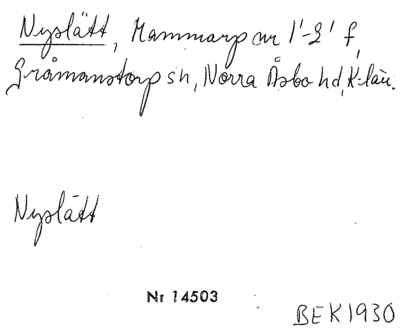 Nyslätt, Mammarp nr 1¹-2¹ f,
Gråmanstorp sn, Norra Åsbo hd, K-län.
Nyslätt
Nr 14503
BEK1930